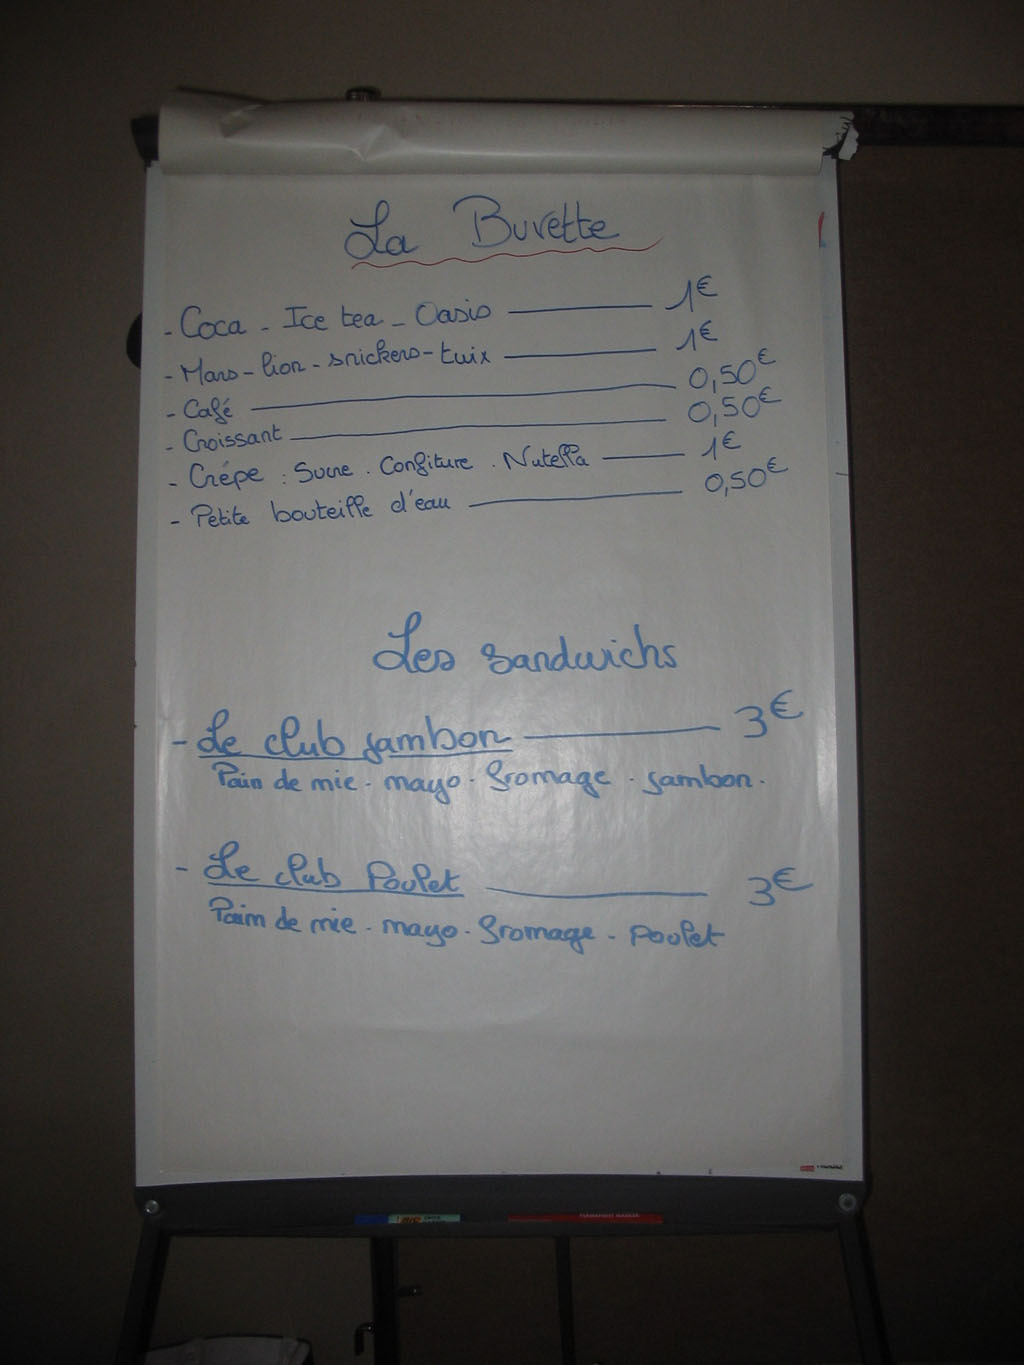 La Buvette
- Coca - Ice tea - Oasis 1€
- Mars - lion - snickers - twix 1€
- Café 0,50€
- Croissant 0,50€
- Crêpe : Sucre . Confiture . Nutella 1€
- Petite bouteille d'eau 0,50€
Les sandwichs
- Le club jambon 3€
Pain de mie . mayo . fromage . jambon.
- Le club Poulet 3€
Pain de mie . mayo . fromage - poulet